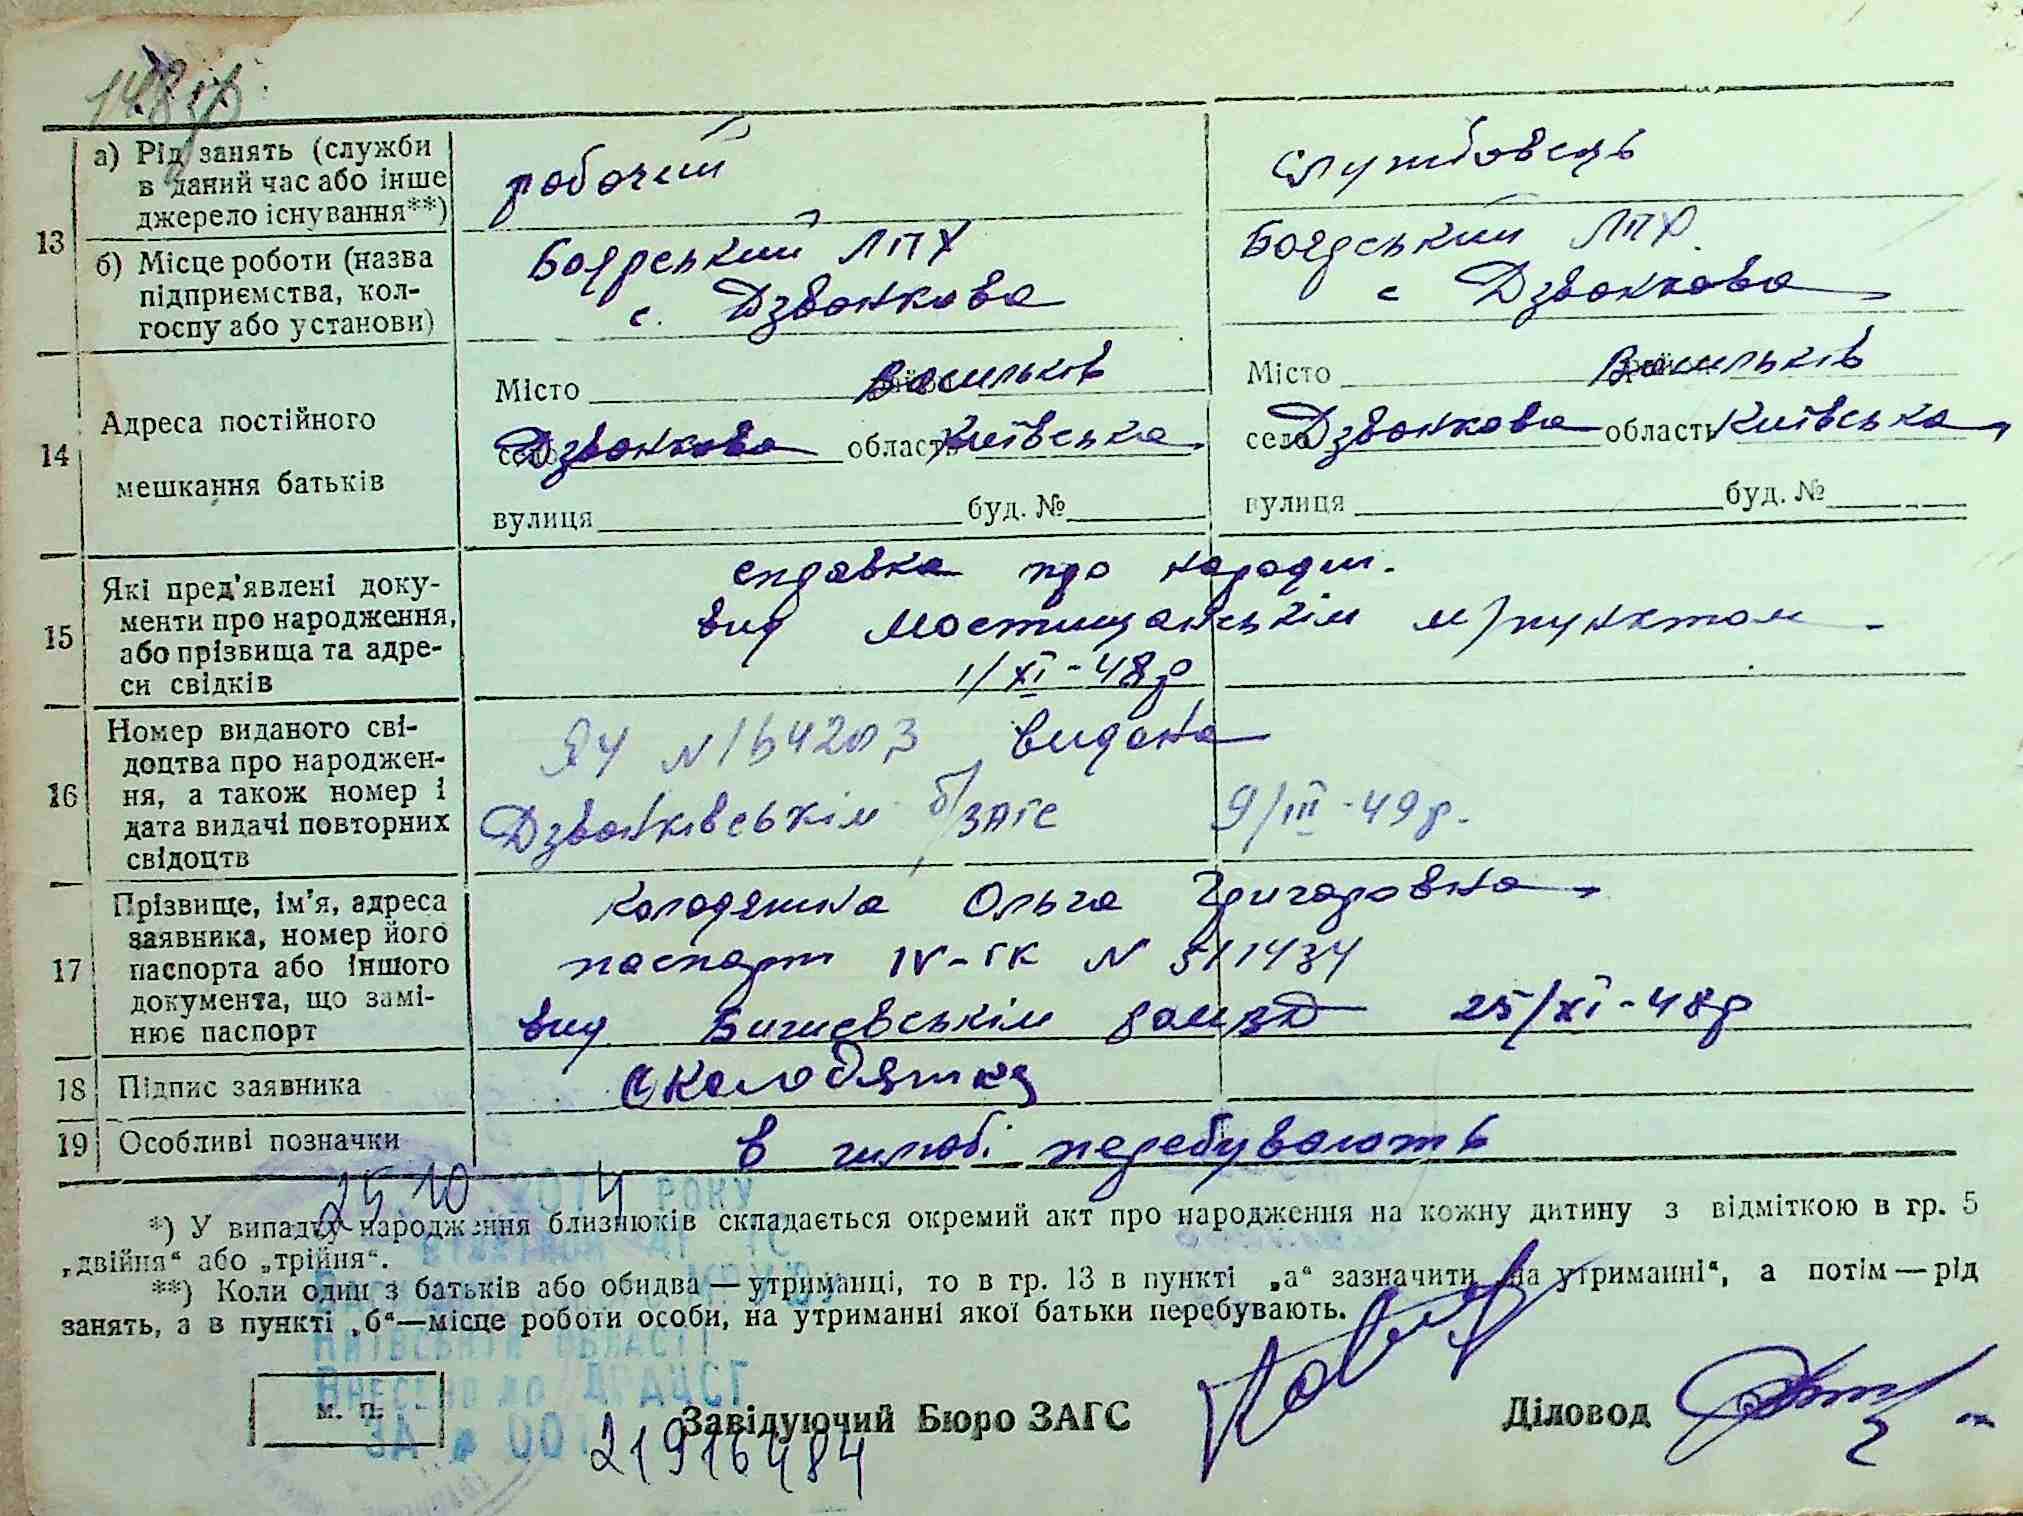 13
а) Рід занять (служби
в даний час або інше
джерело існування**)
робочий
Службовець
б) Місце роботи (назва
підприємства, кол-
госпу або установи)
Боярський ЛПХ
с. Дзвонкова
Боярський ЛПХ.
с Дзвонкова
14
Адреса постійного
мешкання батьків
Місто Васильків
село Дзвонкова область Київська
вулиця буд. №
Місто Васильків
село Дзвонкова область Київська
вулиця буд. №
15
Які пред'явлені доку-
менти про народження,
або прізвища та адре-
си свідків
справка про народж.
вид Мостищанськім м/пунктом
1/XI-48р
16
Номер виданого сві-
доцтва про народжен-
ня, а також номер і
дата видачі повторних
свідоцтв
ЯЧ N 164203 видана
Дзвонківськім б/ЗАГС 9/III-49р.
17
Прізвище, ім'я, адреса
заявника, номер його
паспорта або іншого
документа, що замі-
нює паспорт
Колодяжна Ольга Григоровна
паспорт IV-ГК N 511434
вид 25/XI-48р
18
Підпис заявника
19
Особливі позначки
в шлюбі перебувають
25 10 2014 РОКУ
*) У випадку народження близнюків складається окремий акт про народження на кожну дитину з відміткою в гр. 5
„двійня“ або „трійня“.
**) Коли один з батьків або обидва — утриманці, то в гр. 13 в пункті „а“ зазначити „на утриманні“, а потім — рід
занять, а в пункті „б“ — місце роботи особи, на утриманні якої батьки перебувають.
КИЇВСЬКІЙ ОБЛАСТІ
ВНЕСЕНО ДО ДРАЦСГ
ЗА № 00 21916484
м. п.
Завідуючий Бюро ЗАГС
Діловод